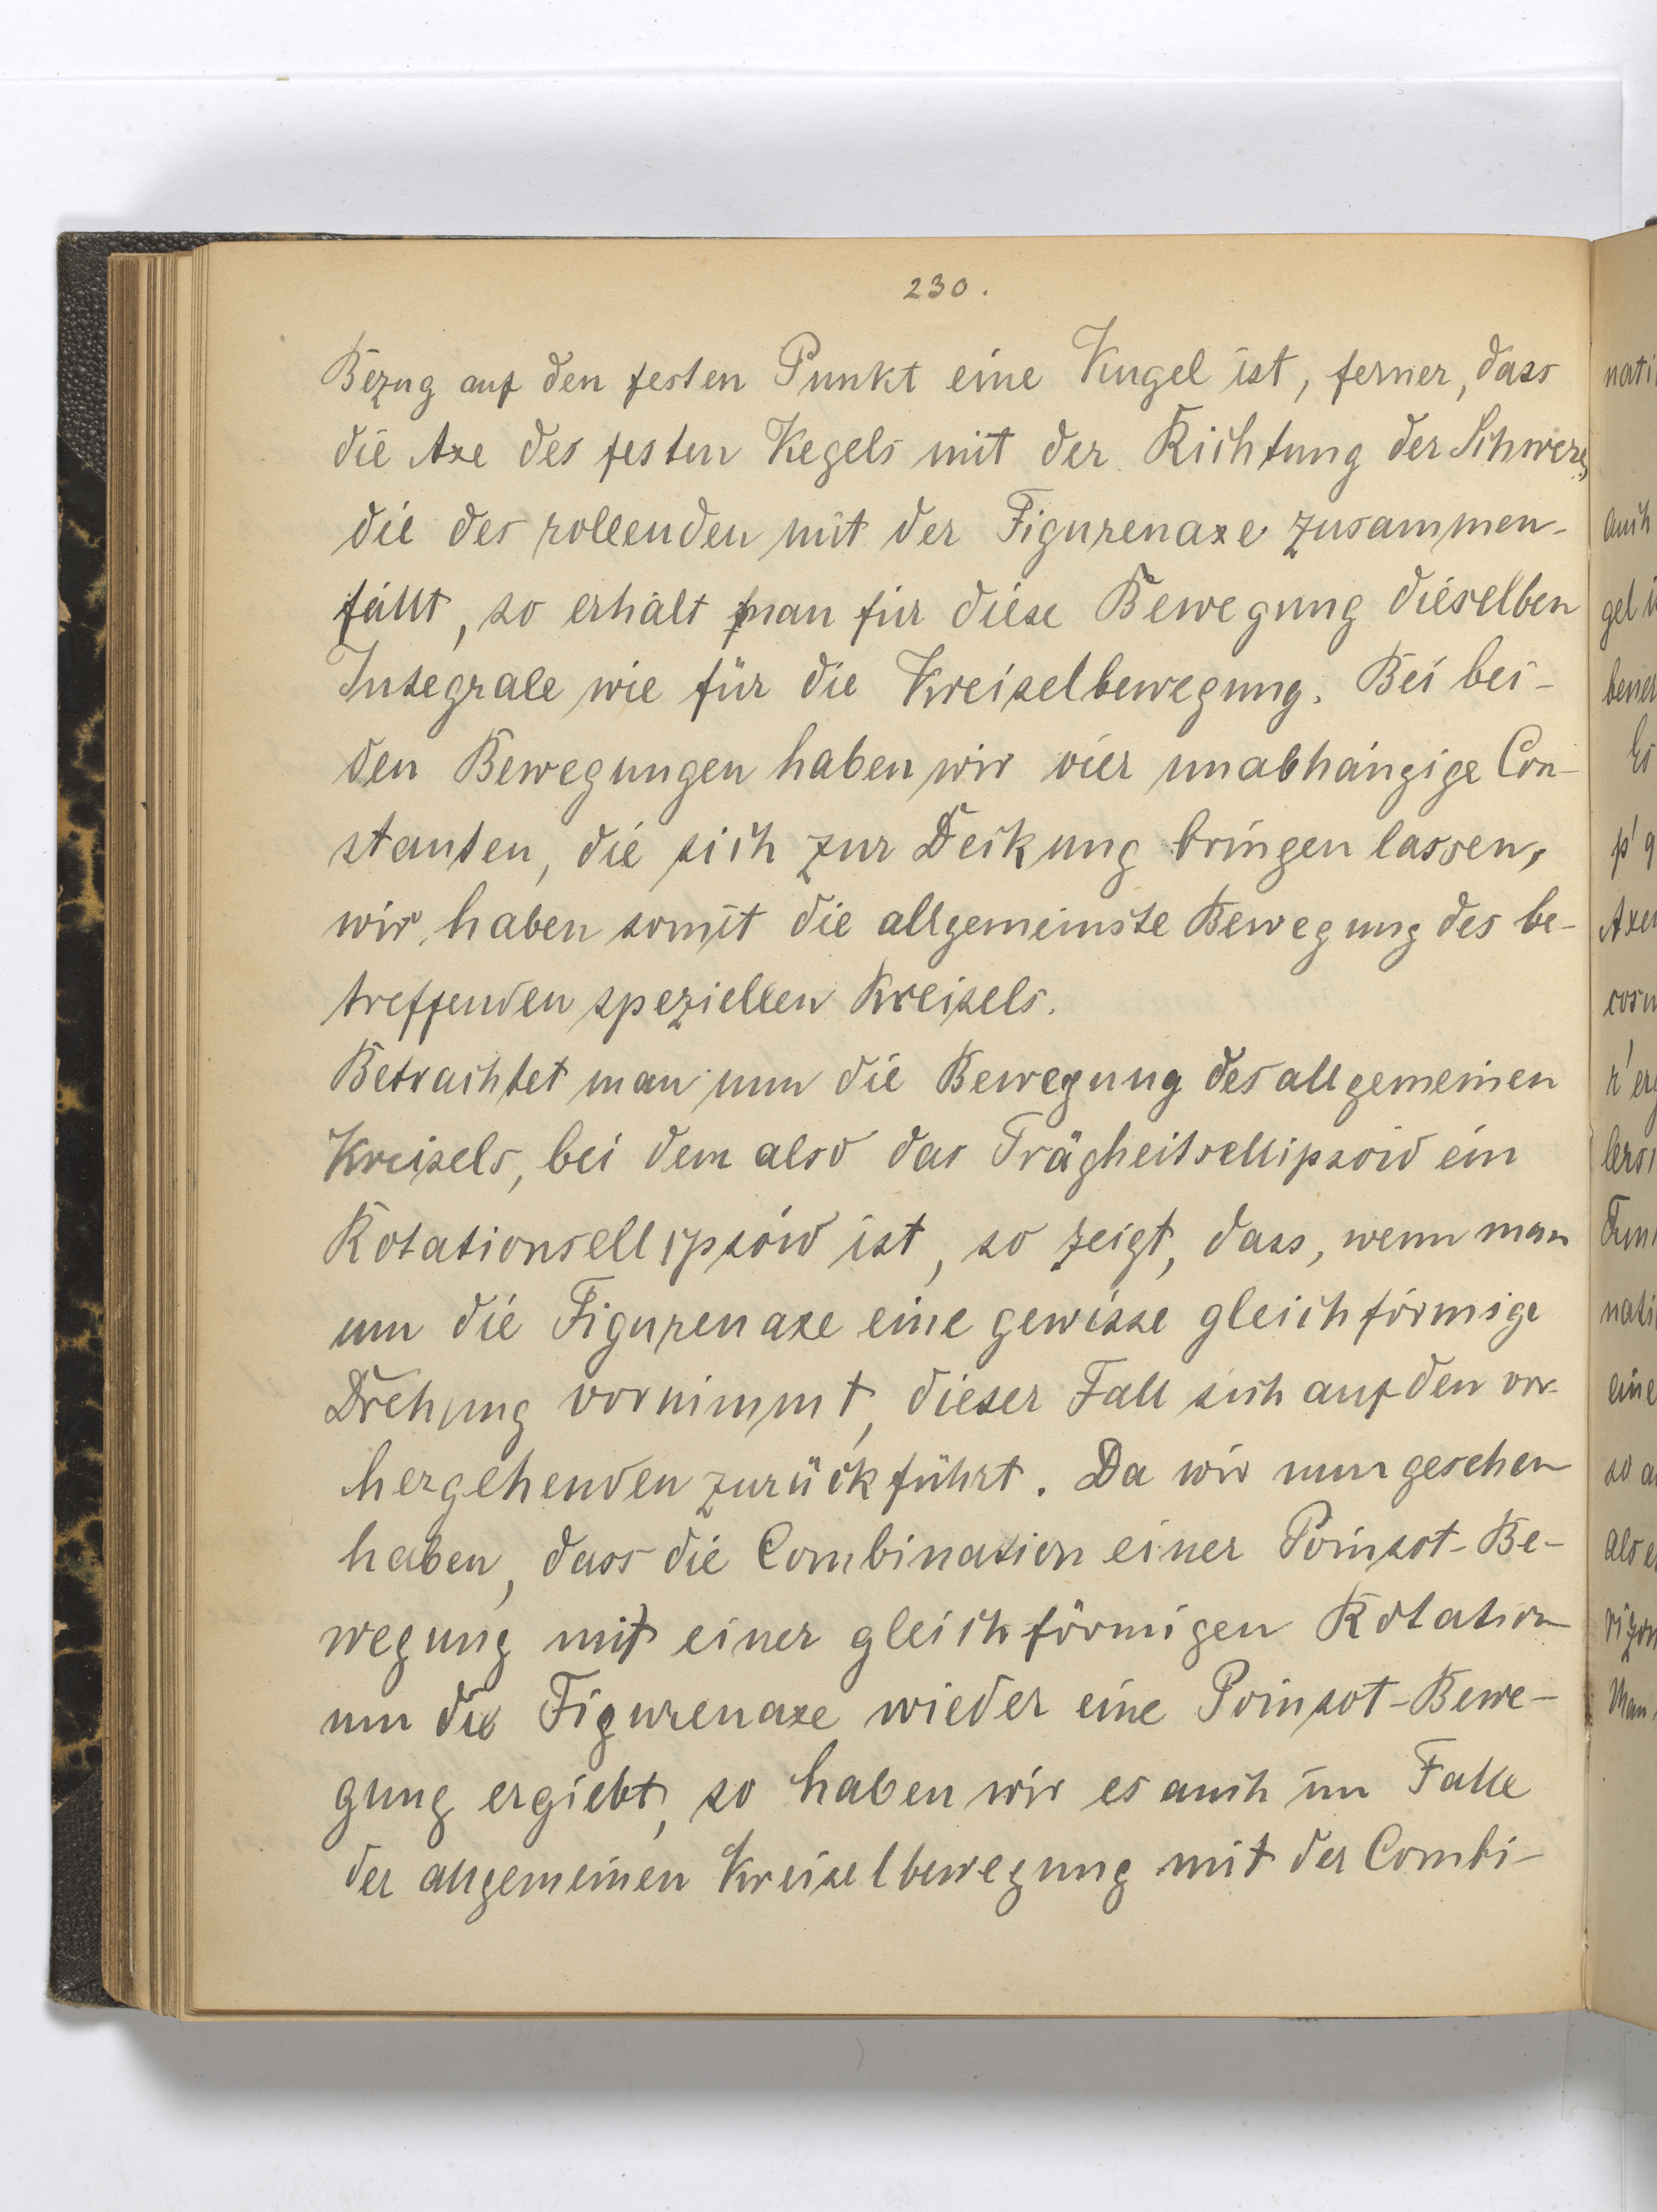 230.
Bezug auf den festen Punkt eine Kugel ist, ferner, dass
die Axe des festen Kegels mit der Richtung der Schwere,
die des rollenden mit der Figurenaxe zusammen-
fällt, so erhält man für diese Bewegung dieselben
Integrale wie für die Kreiselbewegung. Bei bei-
den Bewegungen haben wir vier unabhängige Con-
stanten, die sich zur Deckung bringen lassen,
wir haben somit die allgemeinste Bewegung des be-
treffenden speziellen Kreisels.
Betrachtet man nun die Bewegung des allgemeinen
Kreisels, bei dem also das Trägheitsellipsoid ein
Rotationsellipsoid ist, so zeigt, dass, wenn man
um die Figurenaxe eine gewisse gleichförmige
Drehung vornimmt, dieser Fall sich auf den vor-
hergehenden zurückführt. Da wir nun gesehen
haben, dass die Combination einer Poinsot-Be-
wegung mit einer gleichförmigen Rotation
um die Figurenaxe wieder eine Poinsot-Bewe-
gung ergiebt, so haben wir es auch im Falle
der allgemeinen Kreiselbewegung mit der Combi-